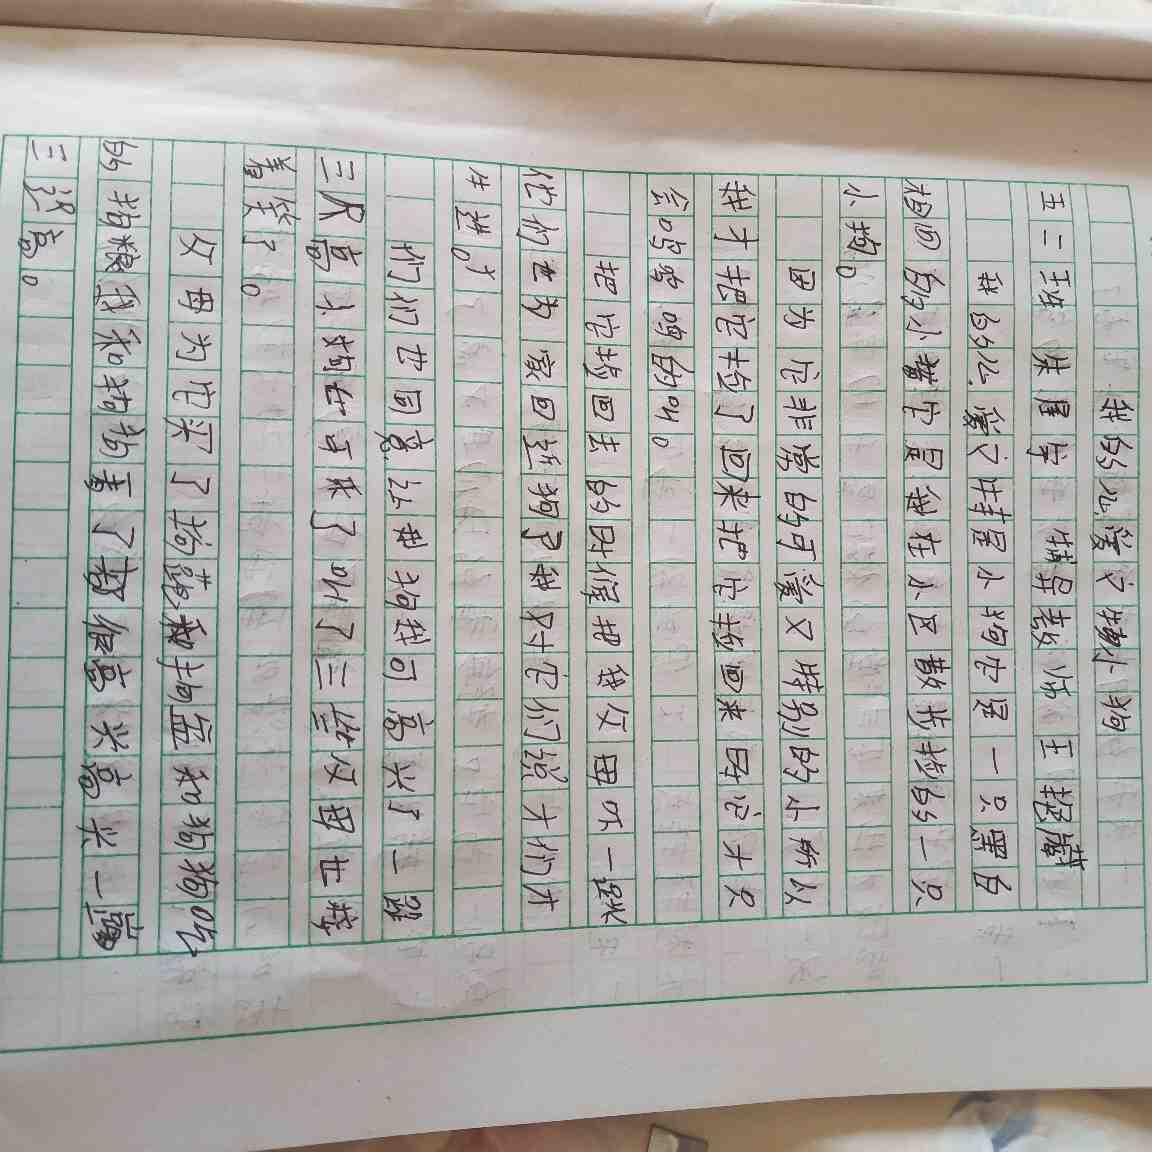 我的心爱之物小狗
五二班 朱星宇 辅导教师 王超
我的心爱之特是小狗它是一只黑白
相回的小 它是我在小区散步捡的一只
小狗。
因为它非常的可爱又特别的小所以
我才把它捡了回来把它捡回来时它才只
会呜呜呜的叫。
把它捡回去的时候把我父母吓一跳
他们也为 家回 狗了我对它们说才们才
进。
们们也同意让我 狗我可高兴了一蹦
三尺高小狗也可来了叫了三 父母也
着笑了。
父母为它买了狗 和狗 和狗狗吃
的狗粮我和狗狗看了都很高兴高兴一
三 高。